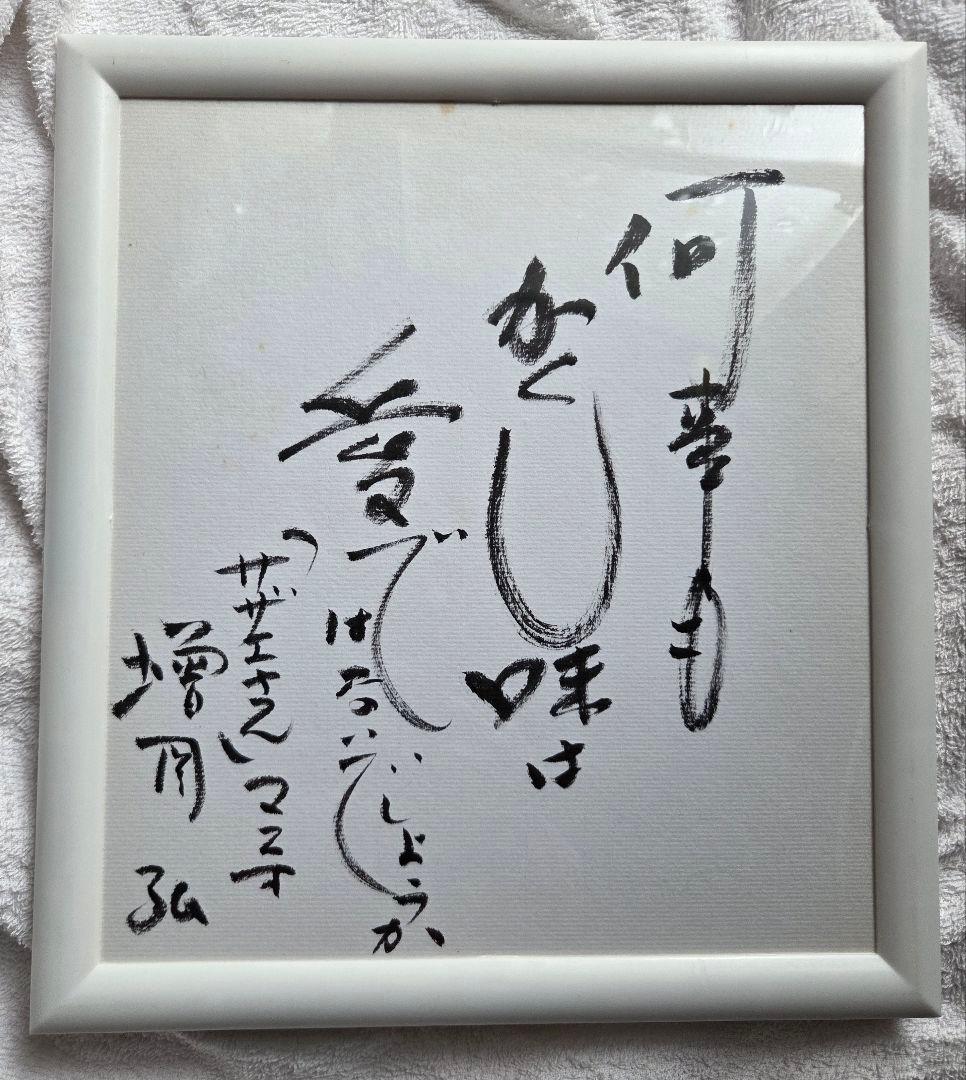 何事も
かくし味は
愛ではないでしょうか
「サザエさん」マスオ
増岡 弘